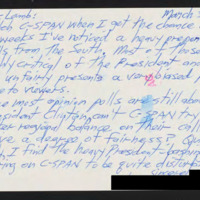 Lamb: March 3
C-SPAN when I get the chance
weeks I've noticed a heavy prepon
from the South. Most of those
critical of the President and
unfairly presents a very biased p
to viewers.
most opinion polls are still abo
President Clinton, can't C-SPAN try
better regional balance on their call
a degree of fairness? Qu
I find the heavy President-bashing
on C-SPAN to be quite disturb
Sincerely